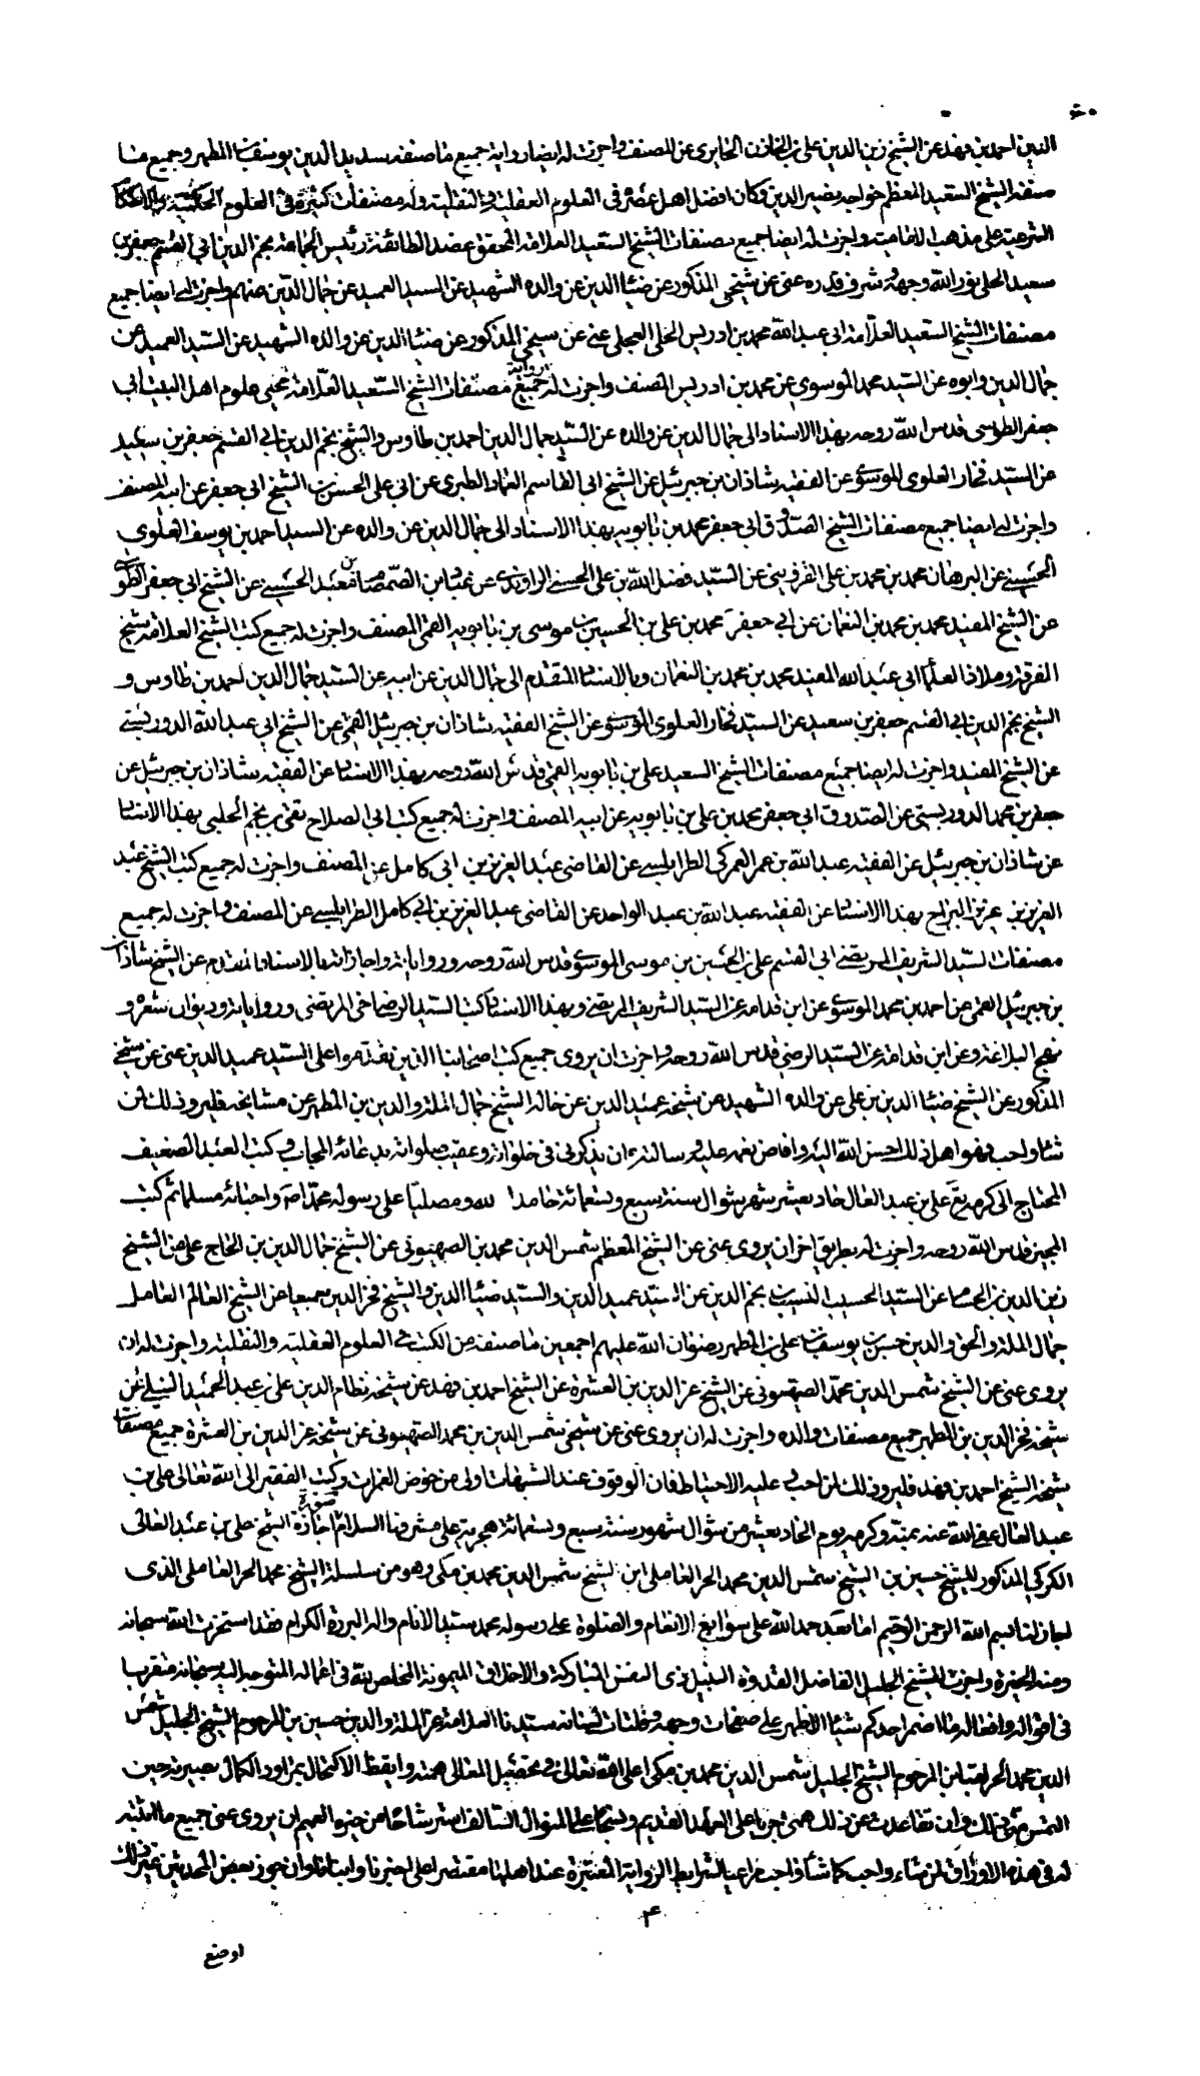 ٦٠
الدين احمد بن فهد عن الشيخ زين الدين علي بن الخازن الحايرى عن المصنف واجزت له ايضا رواية جميع ما صنفه سديد الدين يوسف بن المطهر وجميع ما
صنفه الشيخ السعيد المعظم خواجه نصير الدين وكان افضل اهل عصره فى العلوم العقلية والنقلية وله مصنفات كثيرة فى العلوم الحكمية والاحكام
الشرعية على مذهب الامامية واجزت له ايضا جميع مصنفات الشيخ السعيد العلامة المحقق عضد الطائفة رئيس الجماعة نجم الدين ابي القسم جعفر بن
سعيد الحلى نور الله وجهه وشرف قدره عنى عن شيخى المذكور عن ضياء الدين عن والده الشهيد عن السيد العميد عن جمال الدين عنهم واجزت له ايضا جميع
مصنفات الشيخ السعيد العلامة ابى عبد الله محمد بن ادريس الحلى العجلى عنى عن شيخى المذكور عن ضياء الدين عن والده الشهيد عن السيد العميد عن
جمال الدين وابوه عن السيد محمد الموسوى عن محمد بن ادريس المصنف واجزت له رواية جميع مصنفات الشيخ السعيد العلامة محيى علوم اهل البيت ابى
جعفر الطوسى قدس الله روحه بهذا الاسناد الى جمال الدين عن والده عن السيد جمال الدين احمد بن طاوس والشيخ نجم الدين ابي القسم جعفر بن سعيد
عن السيد فخار العلوى الموسوى عن الفقيه شاذان بن جبرئيل عن الشيخ ابى القاسم العماد الطبرى عن ابى على الحسن بن الشيخ ابى جعفر عن ابيه المصنف
واجزت له ايضا جميع مصنفات الشيخ الصدوق ابي جعفر محمد بن بابويه بهذا الاسناد الى جمال الدين عن والده عن السيد احمد بن يوسف العلوى
الحسينى عن البرهان محمد بن محمد بن على القزوينى عن السيد فضل الله بن على الحسنى الراوندى عن عماد ابن الصمصام بن معبد الحسينى عن الشيخ ابى جعفر الطوسى
عن الشيخ المفيد محمد بن محمد بن النعمان عن ابي جعفر محمد بن على بن الحسين بن موسى بن بابويه القمى المصنف واجزت له جميع كتب الشيخ العلامة شيخ
الفرقة وملاذ العلماء ابى عبد الله المفيد محمد بن محمد بن النعمان وبالاسناد المتقدم الى جمال الدين عن ابيه عن السيد جمال الدين احمد بن طاوس و
الشيخ نجم الدين ابى القسم جعفر بن سعيد عن السيد فخار العلوى الموسوى عن الشيخ الفقيه شاذان بن جبرئيل القمى عن الشيخ ابي عبد الله الدوريستى
عن الشيخ المفيد واجزت له ايضا جميع مصنفات الشيخ السعيد على بن بابويه القمى قدس الله روحه بهذا الاسناد عن الفقيه شاذان بن جبرئيل عن
جعفر بن محمد الدوريستى عن الصدوق ابى جعفر محمد بن على بن بابويه عن ابيه المصنف واجزت له جميع كتب ابى الصلاح تقى بن نجم الحلبى بهذا الاسناد
عن شاذان بن جبرئيل عن الفقيه عبد الله بن عمر العمركى الطرابلسى عن القاضى عبد العزيز بن ابى كامل عن المصنف واجزت له جميع كتب الشيخ عبد
العزيز بن عزيز البراج بهذا الاسناد عن الفقيه عبد الله بن عبد الواحد عن القاضى عبد العزيز بن ابى كامل الطرابلسى عن المصنف واجزت له جميع
مصنفات السيد الشريف المرتضى ابى القسم على بن الحسين بن موسى الموسوى قدس الله روحه ورواياته واجازاته بالاسناد المتقدم عن الشيخ شاذان
بن جبرئيل القمى عن احمد بن محمد الموسوى عن ابن قدامه عن السيد الشريف المرتضى وبهذا الاسناد كتب السيد الرضى اخى المرتضى ورواياته وديوان شعره و
نهج البلاغة وعن ابن قدامة عن السيد الرضى قدس الله روحه واجزت ان يروى جميع كتب اصحابنا الذين تقدموا على السيد عميد الدين عنى عن شيخى
المذكور عن الشيخ ضياء الدين بن على عن والده الشهيد عن شيخه عميد الدين عن خاله الشيخ جمال الملة والدين بن المطهر عن مشايخه فليرو ذلك لمن
شاء واحب فهو اهل ذلك احسن الله اليه وافاض نعمه عليه وسالته ان يذكرنى فى خلواته وعقيب صلواته بدعائه المجاب وكتب العبد الضعيف
المحتاج الى كرمه تع على بن عبد العال حادى عشر شهر شوال سنة سبع وتسعمائة حامدا لله ومصليا على رسوله محمد وآله واحبائه مسلما ثم كتب
المجيز قدس الله روحه واجزت له بطريق اخر ان يروى عنى عن الشيخ المعظم شمس الدين محمد بن الصهيونى عن الشيخ جمال الدين بن الحاج على عن الشيخ
زين الدين بن الحسام عن السيد الحسيب النسيب نجم الدين عن السيد عميد الدين والسيد ضياء الدين والشيخ فخر الدين جميعا عن الشيخ العالم العامل
جمال الملة والحق والدين حسن بن يوسف بن على بن المطهر رضوان الله عليهم اجمعين ما صنفه من الكتب فى العلوم العقلية والنقلية واجزت له ان
يروى عنى عن الشيخ شمس الدين محمد الصهيونى عن الشيخ عز الدين بن العشرة عن الشيخ احمد بن فهد عن شيخه نظام الدين على بن عبد الحميد النيلى عن
شيخه فخر الدين بن المطهر جميع مصنفات والده واجزت له ان يروى عنى عن شيخى شمس الدين بن محمد الصهيونى عن شيخه عز الدين بن العشرة جميع مصنفات
شيخه الشيخ احمد بن فهد فليرو ذلك لمن احب عليه الاحتياط فان الوقوف عند الشبهات اولى من خوض الغمرات وكتب الفقير الى الله تعالى على بن
عبد العال عفى الله عنه بمنه وكرمه يوم الحادى عشر من شوال شهور سنة سبع وتسعمائة هجرية على مشرفها السلام صورة اجازة الشيخ على بن عبد العالى
الكركى المذكور للشيخ حسين بن الشيخ شمس الدين محمد الحر العاملى ابن الشيخ شمس الدين محمد بن مكى وهو من سلسلة الشيخ محمد الحر العاملى الذى
اجاز لنا بسم الله الرحمن الرحيم اما بعد حمد الله على سوابغ الانعام والصلوة على رسوله محمد سيد الانام واله البررة الكرام فقد استخرت الله سبحانه
ومنه الخيرة واجزت للشيخ الجليل الفاضل القدوة النبيل ذى النفس المباركة والاخلاق الميمونة المخلص لله فى اعماله المتوجه اليه سبحانه متقربا
فى اقواله وافعاله وما اضمر احدكم شيئا الا ظهر على صفحات وجهه وفلتات لسانه سيدنا العلامة عز الملة والدين حسين بن المرحوم الشيخ الجليل شمس
الدين محمد الحر ابن المرحوم الشيخ الجليل شمس الدين محمد بن مكى اعلى الله تعالى فى تحصيل المعالى همته وايقظ لاكتحال بمراود الكمال بصيرته حين
التمس منى ذلك وان تقاعدت عن ذلك همتى جريا على العهد القديم ونسجا على المنوال السالف استرشاحا من خيره العميم ان يروى عنى جميع ما اثبته
له فى هذه الاوراق لمن شاء واحب كما شاء واحب مراعيا لشرايط الرواية المعتبرة عند اهلها مقتصرا على اخبرنا وانبانا وان جوز بعض المحدثين غير ذلك
٤
اوضع